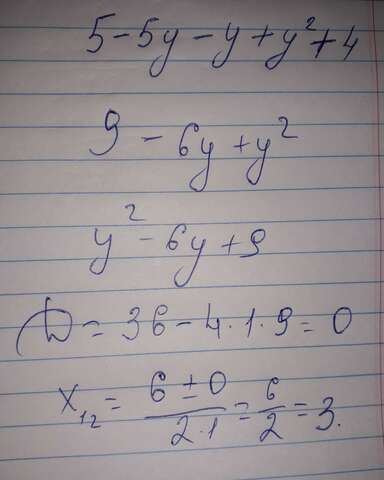 5 - 5y - y + y² + 4
9 - 6y + y²
y² - 6y + 9
D = 36 - 4·1·9 = 0
x₁₂ = (6 ± 0)/(2·1) = 6/2 = 3.